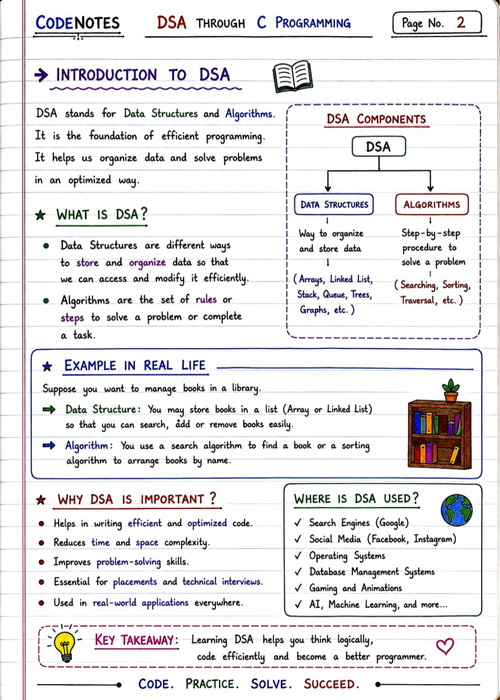 CODENOTES
DSA THROUGH C PROGRAMMING
Page No. 2
→ INTRODUCTION TO DSA
DSA stands for Data Structures and Algorithms.
It is the foundation of efficient programming.
It helps us organize data and solve problems
in an optimized way.
★ WHAT IS DSA?
• Data Structures are different ways
to store and organize data so that
we can access and modify it efficiently.
• Algorithms are the set of rules or
steps to solve a problem or complete
a task.
DSA COMPONENTS
DSA
DATA STRUCTURES
Way to organize
and store data
(Arrays, Linked List,
Stack, Queue, Trees,
Graphs, etc.)
ALGORITHMS
Step-by-step
procedure to
solve a problem
(Searching, Sorting,
Traversal, etc.)
★ EXAMPLE IN REAL LIFE
Suppose you want to manage books in a library.
→ Data Structure: You may store books in a list (Array or Linked List)
so that you can search, add or remove books easily.
→ Algorithm: You use a search algorithm to find a book or a sorting
algorithm to arrange books by name.
★ WHY DSA IS IMPORTANT?
• Helps in writing efficient and optimized code.
• Reduces time and space complexity.
• Improves problem-solving skills.
• Essential for placements and technical interviews.
• Used in real-world applications everywhere.
WHERE IS DSA USED?
✓ Search Engines (Google)
✓ Social Media (Facebook, Instagram)
✓ Operating Systems
✓ Database Management Systems
✓ Gaming and Animations
✓ AI, Machine Learning, and more...
KEY TAKEAWAY: Learning DSA helps you think logically,
code efficiently and become a better programmer.
CODE. PRACTICE. SOLVE. SUCCEED.